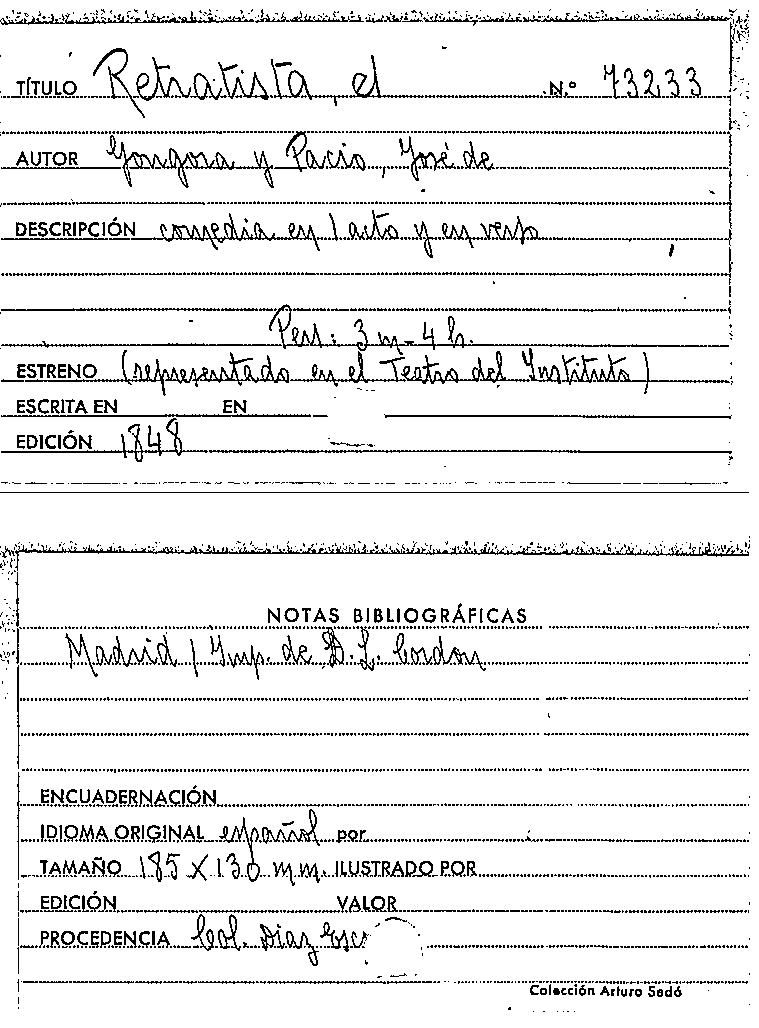 TÍTULO Retratista, el N.º 73233
AUTOR Gongora y Pacio, José de
DESCRIPCIÓN comedia en 1 acto y en verso
Pers: 3 m - 4 h.
ESTRENO (representado en el Teatro del Instituto)
ESCRITA EN EN
EDICIÓN 1848
NOTAS BIBLIOGRÁFICAS
Madrid / Imp. de D. L. Cordon
ENCUADERNACIÓN
IDIOMA ORIGINAL español por
TAMAÑO 185 X 130 mm. ILUSTRADO POR
EDICIÓN VALOR
PROCEDENCIA Col. Diaz Esc
Colección Arturo Sedó